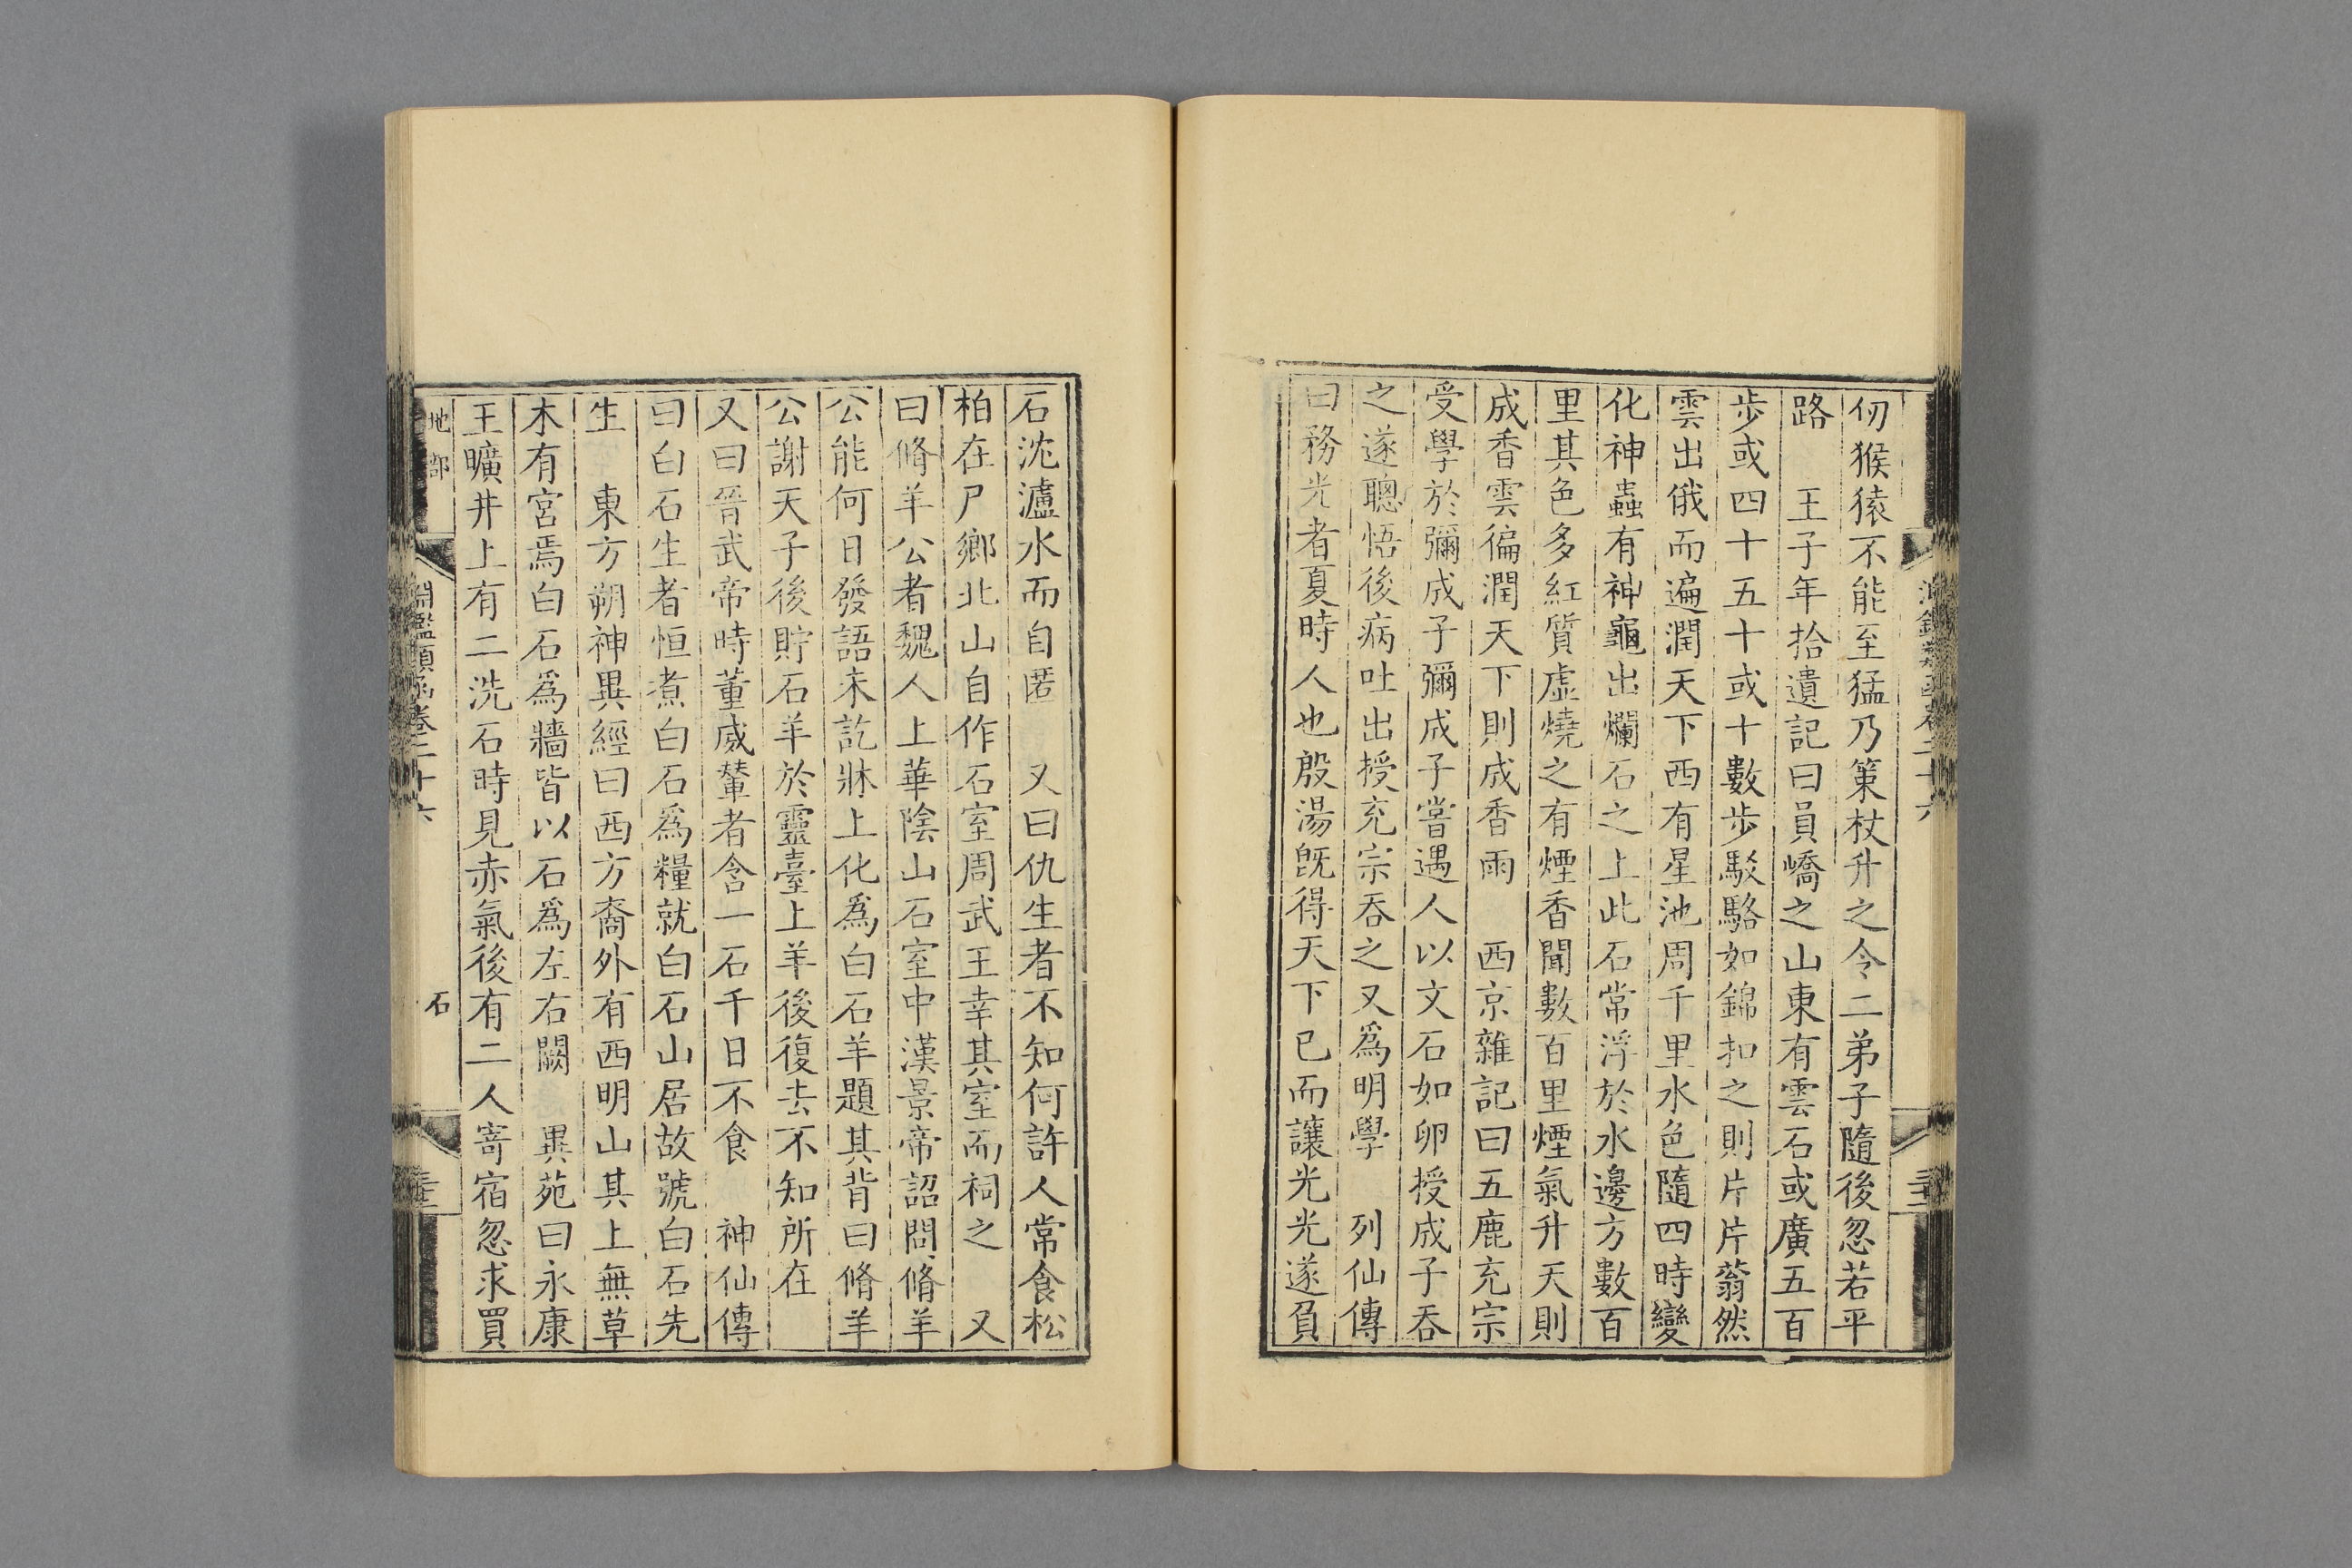 仞猴猿不能至猛乃策杖升之令二弟子隨後忽若平
路　王子年拾遺記曰員嶠之山東有雲石或廣五百
步或四十五十或十數步駮駱如錦扣之則片片蓊然
雲出俄而遍潤天下西有星池周千里水色隨四時變
化神蟲有神龜出爛石之上此石常浮於水邊方數百
里其色多紅質虛燒之有煙香聞數百里煙氣升天則
成香雲徧潤天下則成香雨　西京雜記曰五鹿充宗
受學於彌成子彌成子嘗遇人以文石如卵授成子吞
之遂聰悟後病吐出授充宗吞之又爲明學　列仙傳
曰務光者夏時人也殷湯旣得天下已而讓光光遂負
石沈瀘水而自匿　又曰仇生者不知何許人常食松
柏在尸鄉北山自作石室周武王幸其室而祠之　又
曰脩羊公者魏人上華陰山石室中漢景帝詔問脩羊
公能何日發語未訖牀上化爲白石羊題其背曰脩羊
公謝天子後貯石羊於靈臺上羊後復去不知所在
又曰晉武帝時董威輦者含一石千日不食　神仙傳
曰白石生者恒煮白石爲糧就白石山居故號白石先
生　東方朔神異經曰西方裔外有西明山其上無草
木有宮焉白石爲牆皆以石爲左右闕　異苑曰永康
王曠井上有二洗石時見赤氣後有二人寄宿忽求買
地部
淵鑑類函卷二十六
石